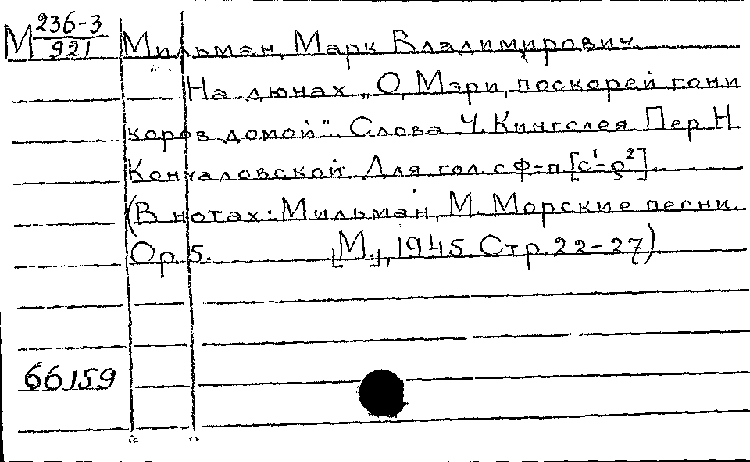 М 236-3/921 Мильман, Марк Владимирович.
На дюнах „О, Мэри, поскорей гони
коров домой". Слова Ч. Кингслея Пер. Н.
Кончаловской. Для гол. с ф-п [c¹-g²].
(В нотах: Мильман, М. Морские песни.
Op. 5. [М.], 1945. Стр. 22-27)
66159